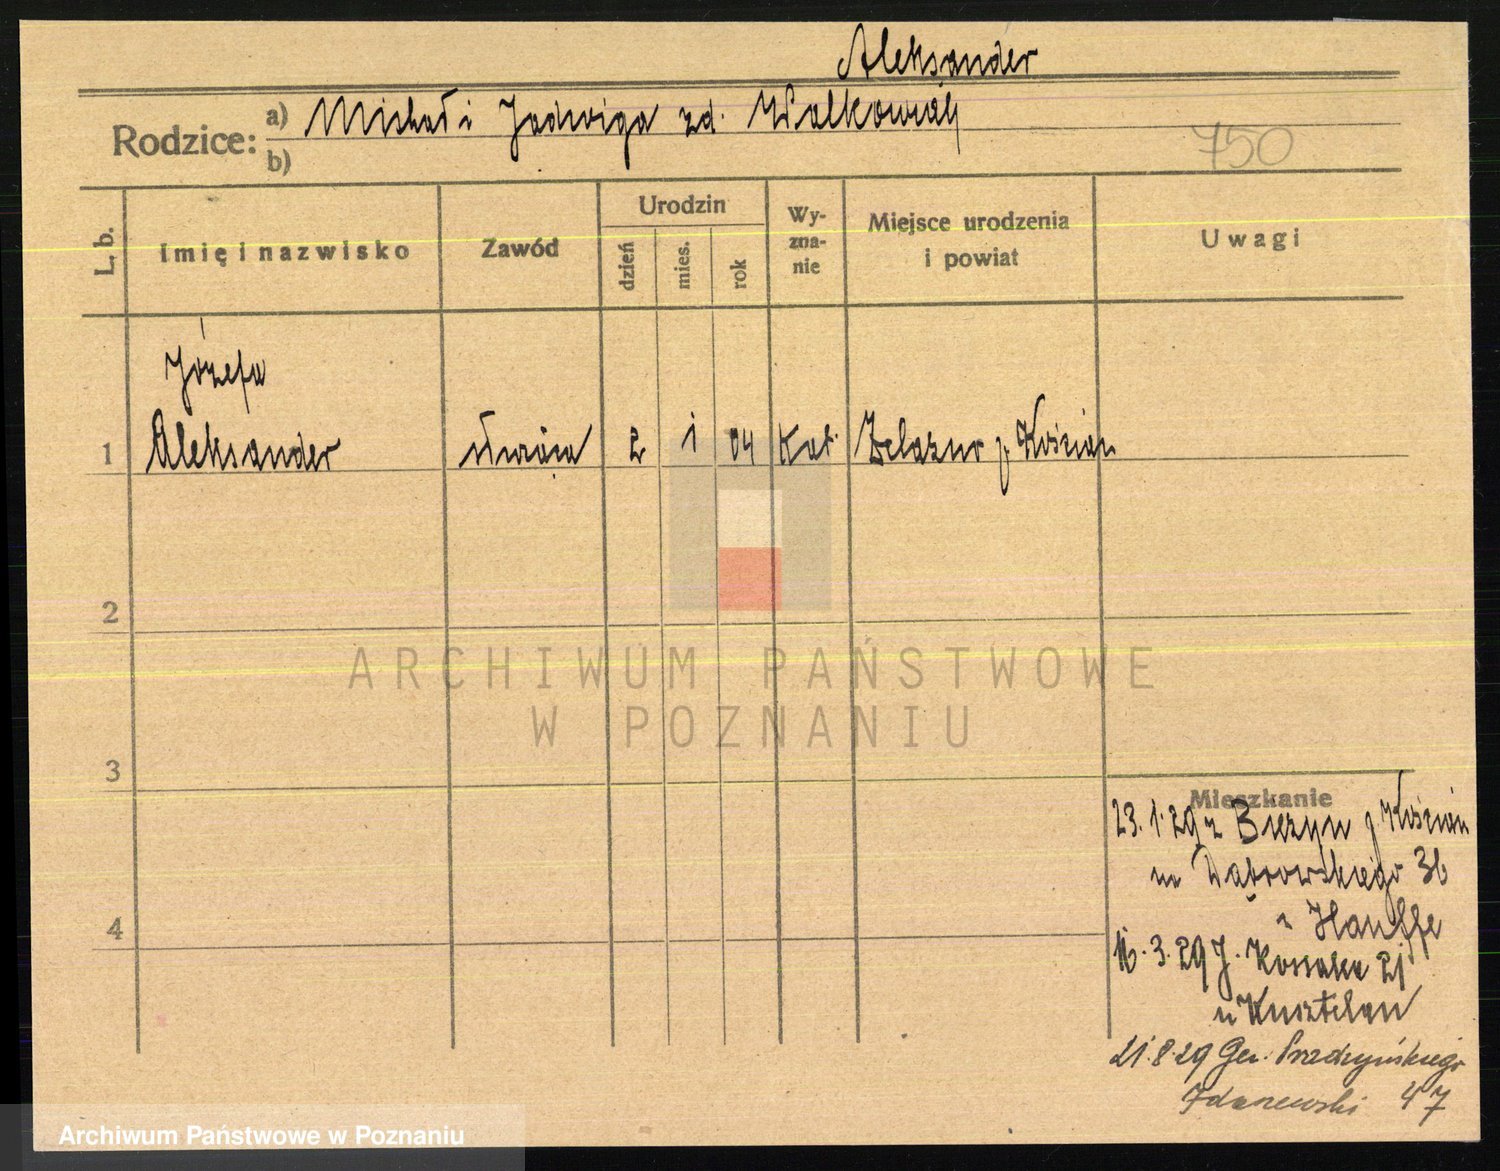 Aleksander
Rodzice:
a) Michał i Jadwiga zd. Walkowiak
b)
750
L. b.
Imię i nazwisko
Zawód
Urodzin
dzień
mies.
rok
Wy-
zna-
nie
Miejsce urodzenia
i powiat
Uwagi
Józefa
1 Aleksander 2 1 04 Kat. Żelazno p. Kościan
2
3
4
Mieszkanie
23.1.29 z Bieżyn p Kościan
Dąbrowskiego 36
Hauffe
16.3.29 J. Kossaka 21
u Kusztelan
21.8.29 Gen. Prądzyńskiego
Zdanewski 47
ARCHIWUM PAŃSTWOWE
W POZNANIU
Archiwum Państwowe w Poznaniu